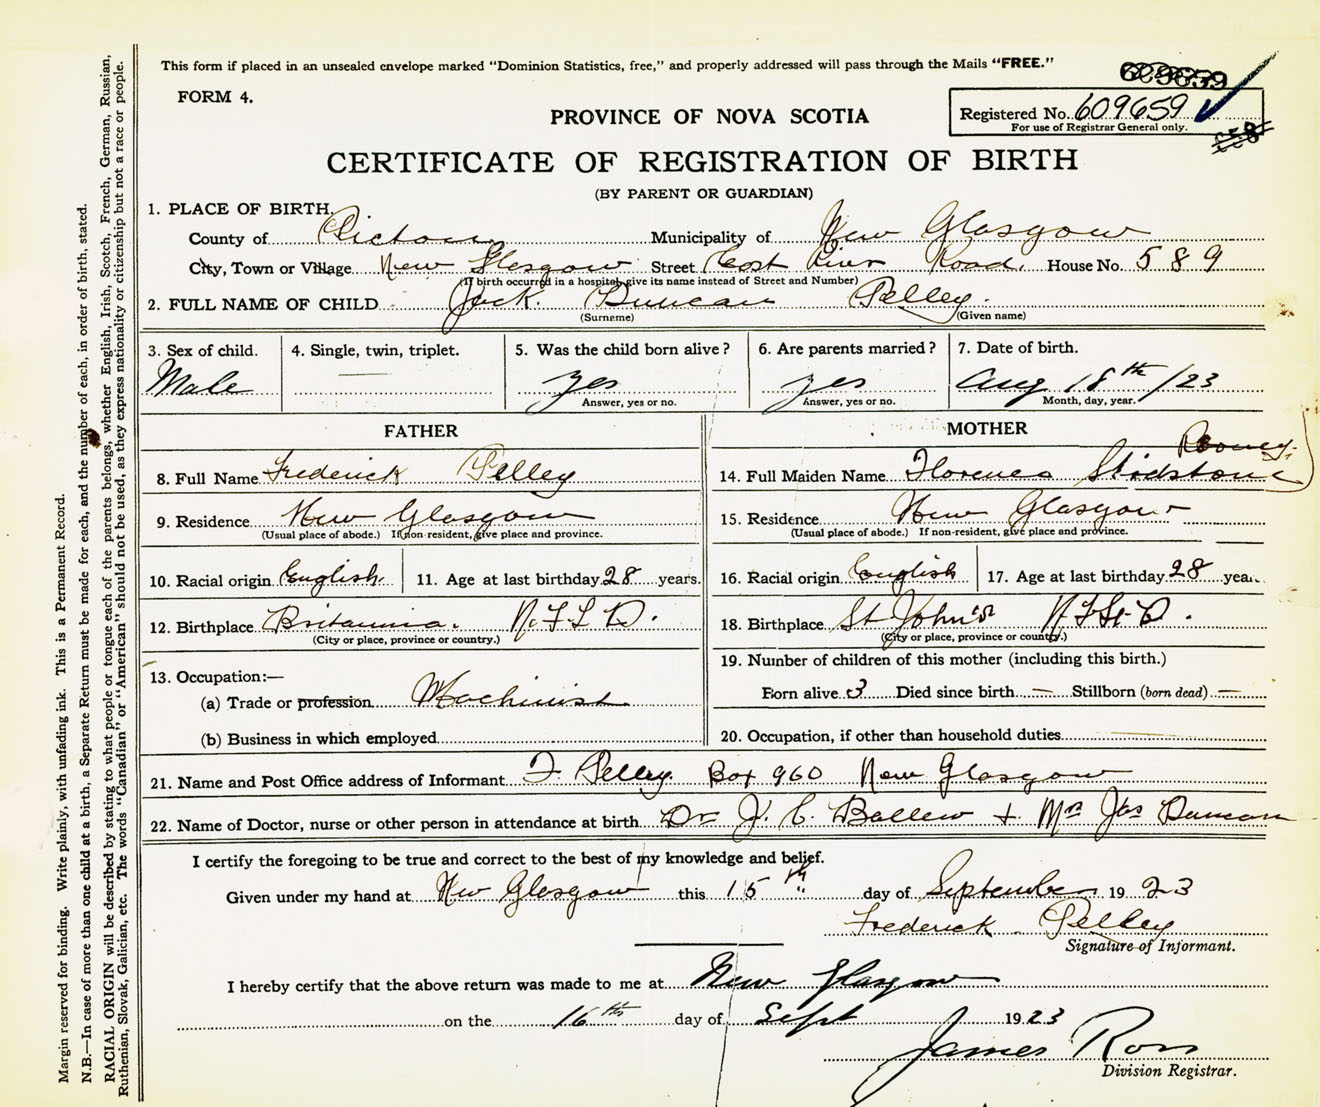 This form if placed in an unsealed envelope marked "Dominion Statistics, free," and properly addressed will pass through the Mails "FREE."
609659
FORM 4.
PROVINCE OF NOVA SCOTIA
Registered No. 609659
For use of Registrar General only.
CERTIFICATE OF REGISTRATION OF BIRTH
(BY PARENT OR GUARDIAN)
1. PLACE OF BIRTH.
County of Pictou Municipality of New Glasgow
City, Town or Village New Glasgow Street East River Road. House No. 589
(If birth occurred in a hospital, give its name instead of Street and Number)
2. FULL NAME OF CHILD Jack. Duncan Pelley.
(Surname) (Given name)
3. Sex of child. 4. Single, twin, triplet. 5. Was the child born alive? 6. Are parents married? 7. Date of birth.
Male — yes yes Aug 18th/23
Answer, yes or no. Answer, yes or no. Month, day, year.
FATHER MOTHER
8. Full Name Frederick Pelley 14. Full Maiden Name Florence Stidstone
9. Residence New Glasgow 15. Residence New Glasgow
(Usual place of abode.) If non-resident, give place and province. (Usual place of abode.) If non-resident, give place and province.
10. Racial origin English. 11. Age at last birthday 28 years. 16. Racial origin English 17. Age at last birthday 28 yea..
12. Birthplace Britannia. N.F.L.D. 18. Birthplace St John's NFL D.
(City or place, province or country.) (City or place, province or country.)
13. Occupation:— 19. Number of children of this mother (including this birth.)
(a) Trade or profession Machinist Born alive 3 Died since birth — Stillborn (born dead) —
(b) Business in which employed 20. Occupation, if other than household duties
21. Name and Post Office address of Informant F. Pelley. Box 960 New Glasgow
22. Name of Doctor, nurse or other person in attendance at birth Dr J. C. Ballew + Mrs Jas Duncan
I certify the foregoing to be true and correct to the best of my knowledge and belief.
Given under my hand at New Glasgow this 15th day of September 1923
Frederick Pelley
Signature of Informant.
I hereby certify that the above return was made to me at New Glasgow
on the 16th day of Sept 1923
James Ross
Division Registrar.
Margin reserved for binding. Write plainly, with unfading ink. This is a Permanent Record.
N.B.—In case of more than one child at a birth, a Separate Return must be made for each, and the number of each, in order of birth, stated.
RACIAL ORIGIN will be described by stating to what people or tongue each of the parents belongs, whether English, Irish, Scotch, French, German, Russian,
Ruthenian, Slovak, Galician, etc. The words "Canadian" or "American" should not be used, as they express nationality or citizenship but not a race or people.